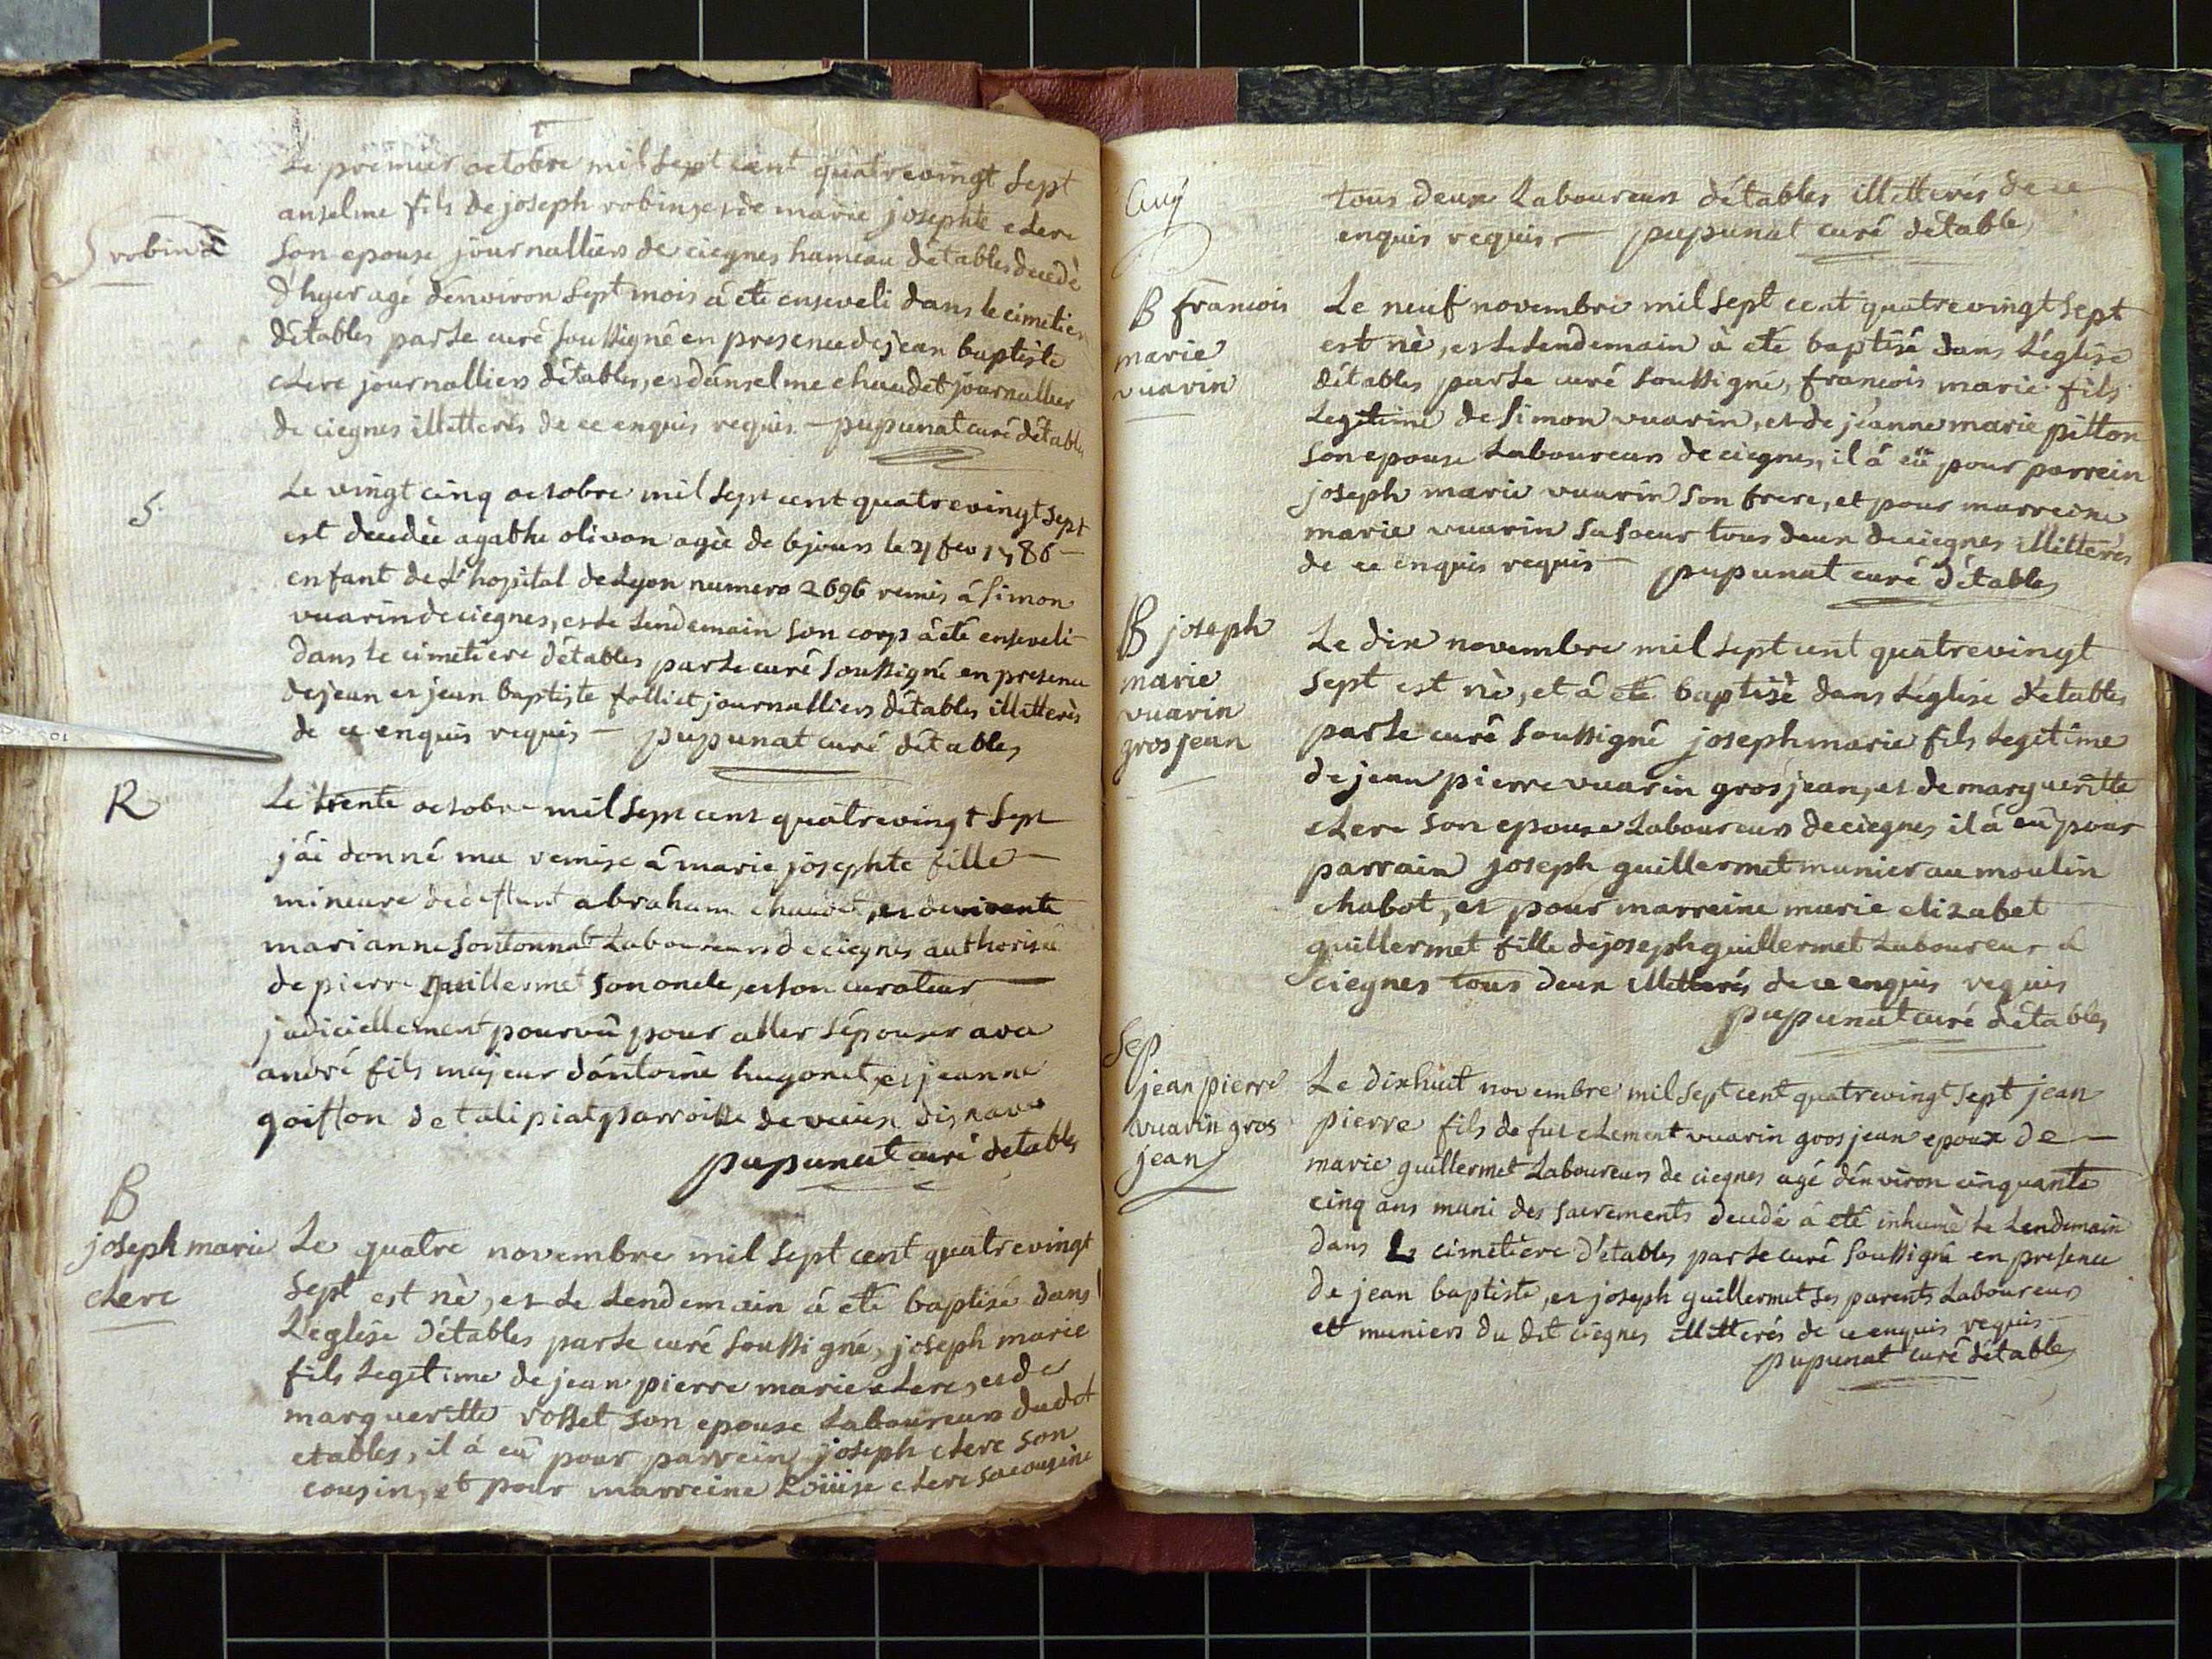 Le premier octobre mil sept cent quatrevingt sept
anselme fils de joseph robin, et de marie josephte clerc
S robin
son epouse journalliers de ciegnes hameau détables decedé
d'hyer agé denviron sept mois á eté enseveli dans le cimetiere
détables par le curé soussigné en presence de jean baptiste
clerc journalliers détables, et dánselme chaudet journallier
de ciegnes illitterés de ce enquis requis - pupunat curé détables
S.
Le vingt cinq octobre mil sept cent quatrevingt sept
est decedée agathe olivon agée de 6 jours le 21 fev 1786 -
enfant de L'hospital de Lyon numero 2696 remis á Simon
vuarin de ciegnes, et Le Lendemain son corps á eté enseveli
dans le cimetiere détables par le curé soussigné en presence
de jean et jean baptiste folliet journalliers détables illitterés
de ce enquis requis - pupunat curé détables
R
Le trente octobre mil sept cent quatrevingt sept
j'ái donné ma remise á marie josephte fille
mineure de deffunt abraham chaudet, et de vivente
marianne sontonnat Laboureurs de ciegnes authorisée
de pierre guillermet son oncle, et son curateur
judiciellement pourvû pour aller sépouser avec
andré fils majeur dántoine hugonet, et jeanne
goiffon de talipiat parroisse de
pupunat curé détables
B
joseph marie
clerc
Le quatre novembre mil sept cent quatrevingt
sept est nè, et Le Lendemain á eté baptisé dans
L'eglise détables par Le curé soussigné, joseph marie
fils Legitime de jean pierre marie clerc, et de
margueritte rosset son epouse Laboureurs dudot
etables, il á eû pour parrein joseph clerc son
cousin, et pour marreine Loüise clerc sa cousine
tous deux Laboureurs détables illitterés de ce
enquis requis - pupunat curé détable
B francois
marie
vuarin
Le neuf novembre mil sept cent quatrevingt sept
est nè, et Le Lendemain à eté baptisé dans L'église
détables par Le curé soussigné, francois marie fils
Legitime de Simon vuarin, et de jeanne marie pitton
son epouse Laboureurs de ciegnes, il á eü pour parrein
joseph marie vuarin son frere, et pour marreine
marie vuarin sa soeur tous deux de ciegnes illitterés
de ce enquis requis - pupunat curé détables
B joseph
marie
vuarin
gros jean
Le dix novembre mil sept cent quatrevingt
sept est nè, et á eté baptisè dans L'eglise détables
par Le curé soussigné joseph marie fils Legitime
de jean pierre vuarin gros jean, et de margueritte
clerc son epouse Laboureurs de ciegnes il á eû pour
parrain joseph guillermet munier au moulin
chabot, et pour marreine marie elizabet
guillermet fille de joseph guillermet Laboureur d
ciegnes tous deux illitterés de ce enquis requis
pupunat curé détables
Sep
jean pierre
vuarin gros
jean
Le dixhuit novembre mil sept cent quatrevingt sept jean
pierre fils de fut clement vuarin gros jean epoux de -
marie guillermet Laboureurs de ciegnes agé dénviron cinquante
cinq ans muni des sacrements decedé á eté inhumè Le Lendemain
dans Le cimetiere d'etables par Le curé soussigné en presence
de jean baptiste, et joseph guillermet ses parents Laboureurs
et muniers du dit ciegnes illitterés de ce enquis requis -
pupunat curé détables